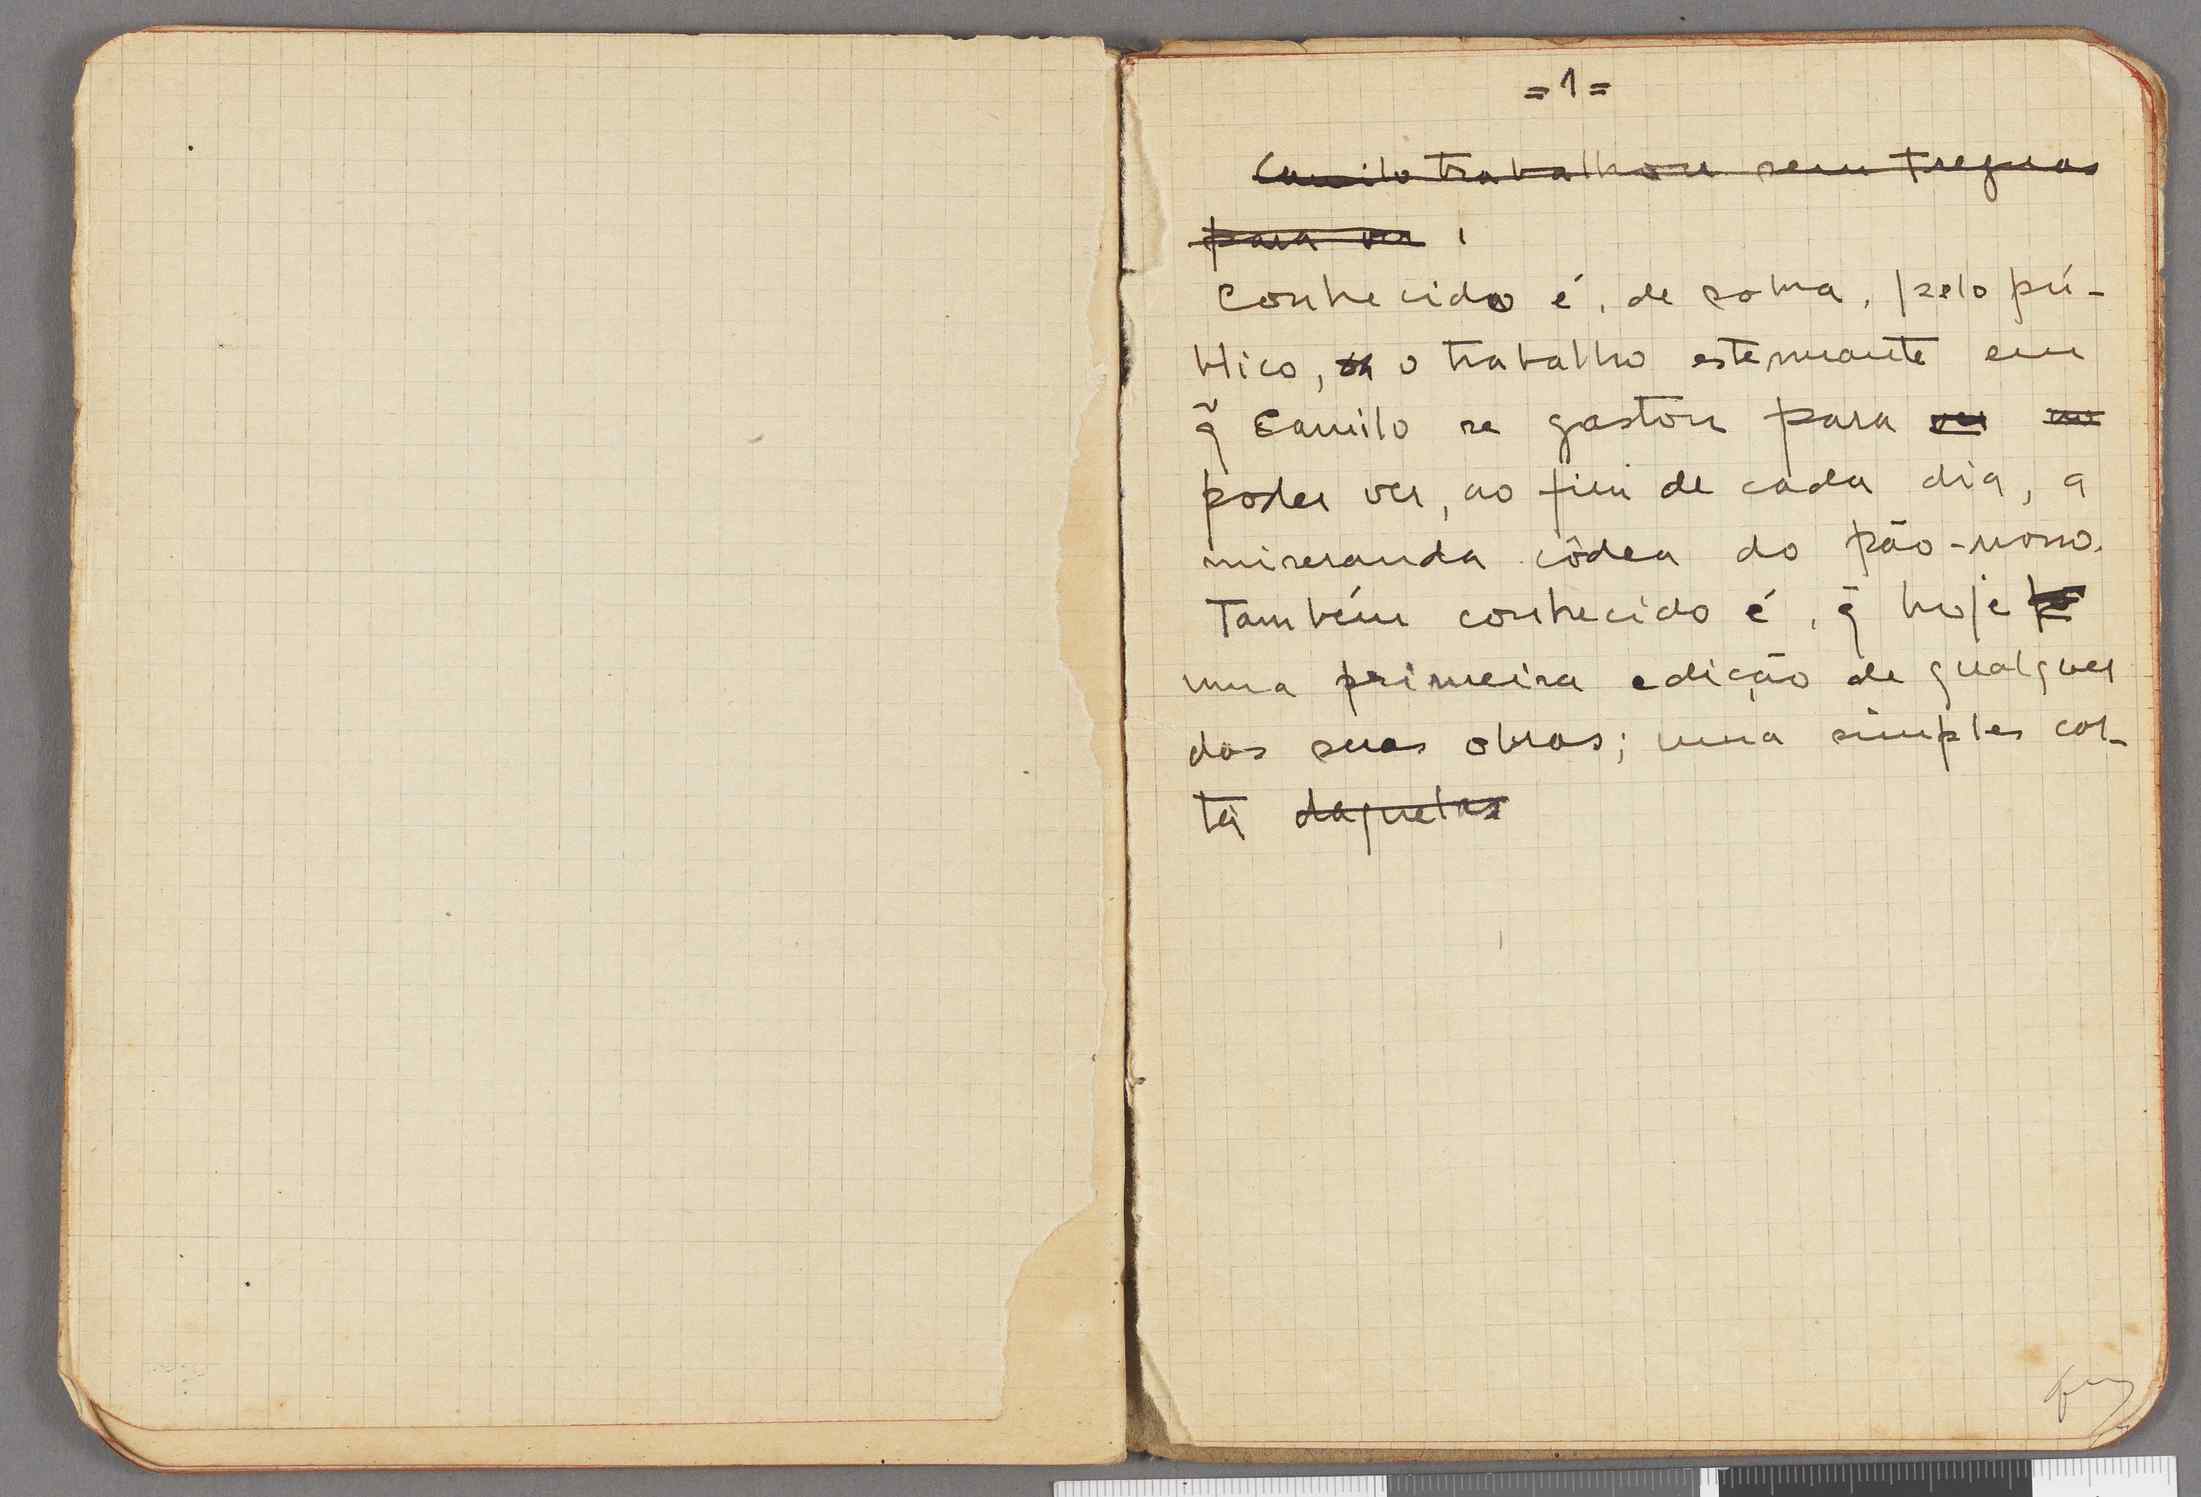 = 1 =
Camilo trabalhou sem treguas
para ver
Conhecido é, de sobra, pelo pú-
blico, o trabalho estenuante em
q̃ Camilo se gastou para ver no
poder ver, ao fim de cada dia, a
miseranda côdea do pão-nosso.
Também conhecido é, q̃ hoje
uma primeira edição de qualquer
das suas obras; uma simples car-
ta daquelas